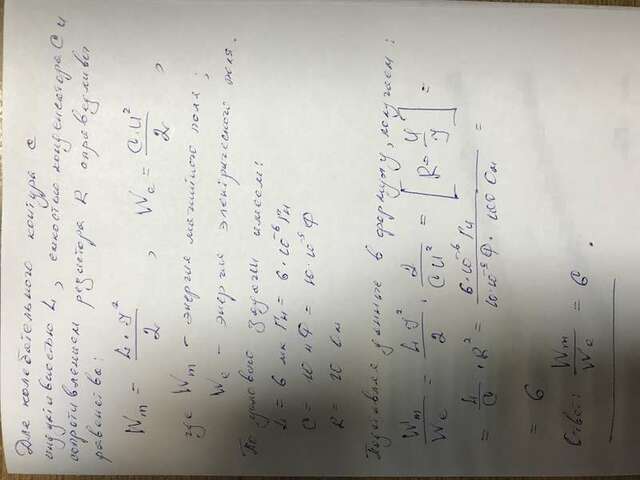 Для колебательного контура с
индуктивностью L, емкостью конденсатора C и
сопротивлением резистора R справедливы
равенства:
Wm = L·I² / 2 , We = C·U² / 2 ,
где Wm – энергия магнитного поля;
We – энергия электрического поля.
По условию задачи имеем:
L = 6 мк Гн = 6·10⁻⁶ Гн
C = 10 нФ = 10·10⁻⁹ Ф
R = 10 Ом
Подставляя данные в формулу, получаем:
Wm / We = L I² / 2 · 2 / C U² = [R = U / I] =
= L / C · R² = 6·10⁻⁶ Гн / 10·10⁻⁹ Ф · 100 Ом =
= 6
Ответ: Wm / We = 6.